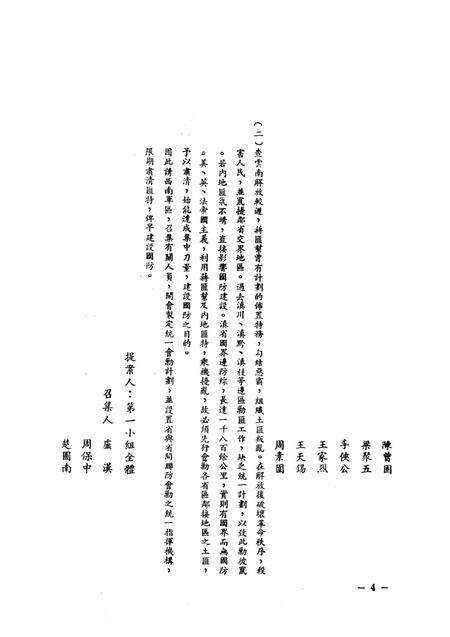 陳曾固
梁聚五
李俠公
王家烈
王天錫
周素園
(二)查雲南解放較遲，蔣匪幫曾有計劃的佈置特務，勾結惡霸，組織土匪叛亂。在解放後破壞革命秩序，殺
害人民，並竄擾鄰省交界地區。過去滇川、滇黔、滇桂等邊區勦匪工作，缺乏統一計劃，以致此勦彼竄
。若內地匪氛不靖，直接影響國防建設。滇省國界邊防線，長達一千八百餘公里，實則有國界而無國防
。美、英、法帝國主義，利用蔣匪幫及內地匪特，乘機擾亂，故必須先行會勦各省區鄰接地區之土匪，
予以肅清，始能達成集中力量，建設國防之目的。
因此請西南軍區，召集有關人員，開會製定統一會勦計劃，並設置省與省間聯防會勦之統一指揮機構，
限期肅清匪特，俾早建設國防。
提案人：第一小組全體
召集人 盧漢
周保中
楚圖南
— 4 —